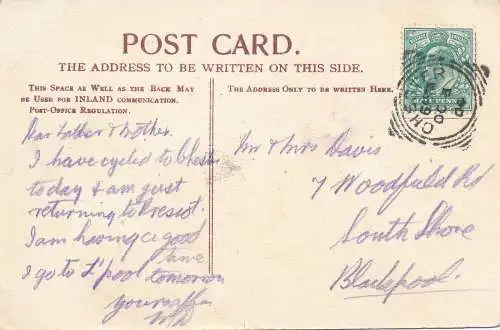 POST CARD.
THE ADDRESS TO BE WRITTEN ON THIS SIDE.
THIS SPACE AS WELL AS THE BACK MAY
BE USED FOR INLAND COMMUNICATION.
POST-OFFICE REGULATION.
THE ADDRESS ONLY TO BE WRITTEN HERE.
Dear Father & Mother.
I have cycled to Chester
today & am just
returning to Prescot.
I am having a good
time
I go to L'pool tomorrow
yours aff
Mr & Mrs Davis
7 Woodfield Rd
South Shore
Blackpool.